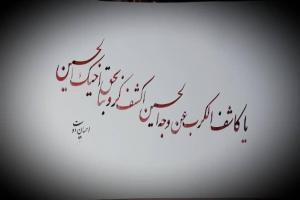 یا کاشف الکرب عن وجه الحسین اکشف کروبنا بحق اخیک الحسین
احسان دوست